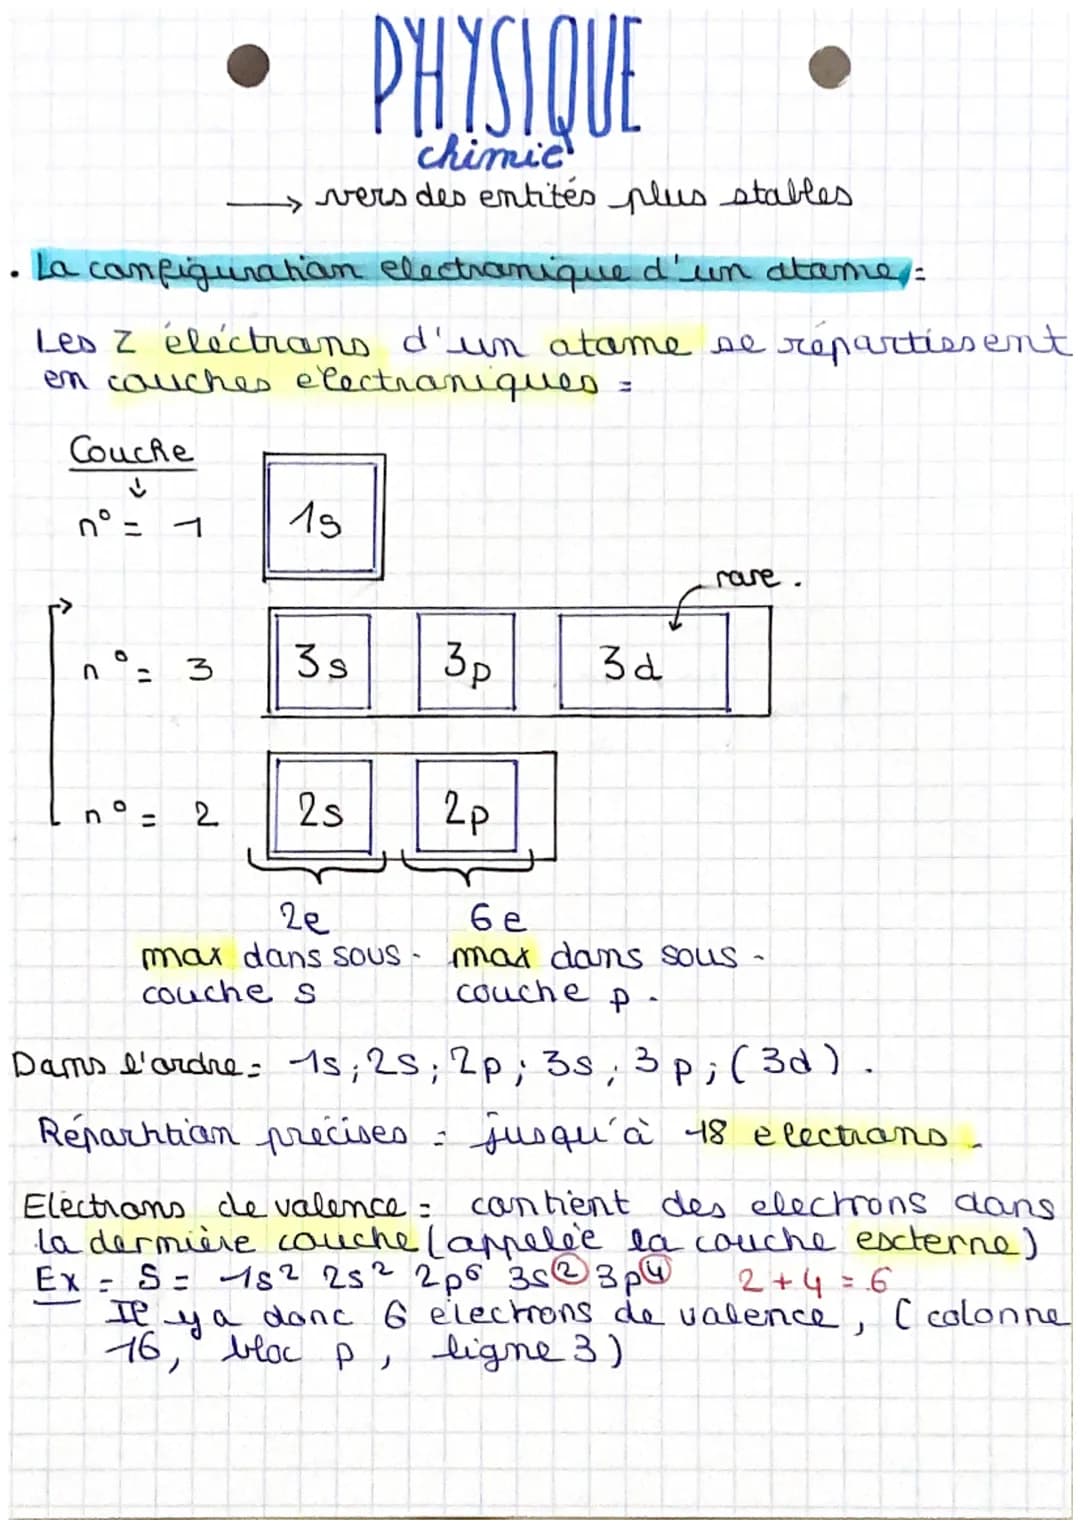 PHYSIQUE
chimie
→ vers des entités plus stables
• La configuration electronique d'un atome :
Les Z éléctrons d'un atome se répartissent
en couches electroniques :
Couche
↓
n° = 1 1s
rare .
n° = 3 3s 3p 3d
n° = 2 2s 2p
2e 6e
max dans sous - max dans sous -
couche s couche p .
Dans l'ordre = 1s ; 2s ; 2p ; 3s ; 3p ; (3d) .
Répartition précises : jusqu'à 18 electrons .
Electrons de valence = contient des electrons dans
la dernière couche (appelée la couche externe)
Ex = S = 1s² 2s² 2p⁶ 3s② 3p④ 2 + 4 = 6
Il y a donc 6 électrons de valence, (colonne
16, bloc p, ligne 3)